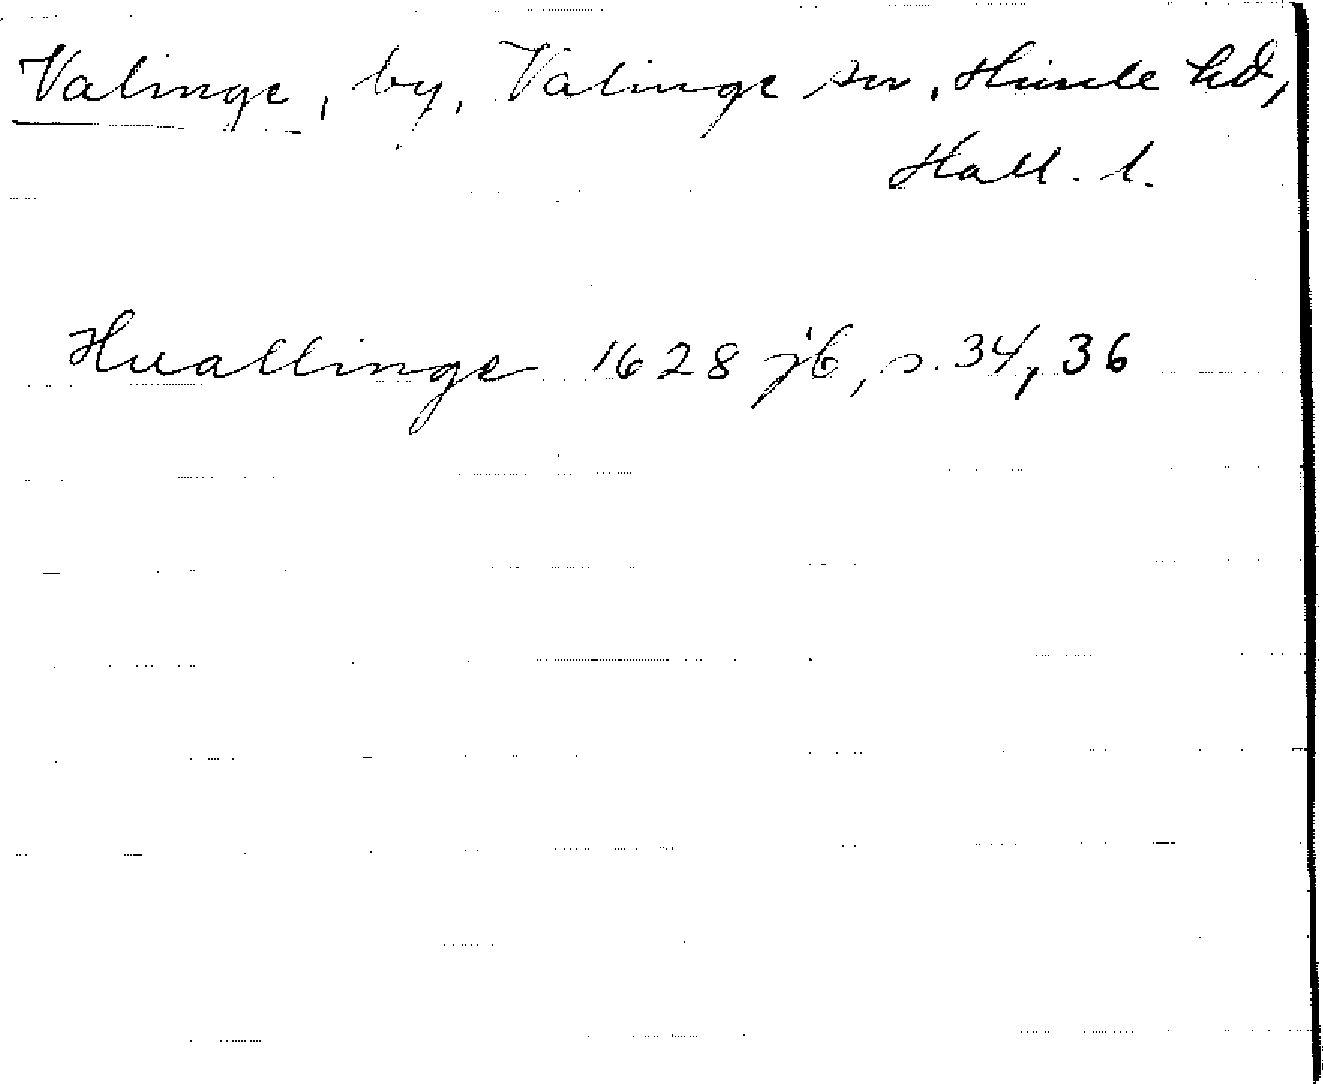 Valinge, by, Valinge sn, Himle hd,
Hall. l.
Huallinge 1628 jb, s. 34, 36